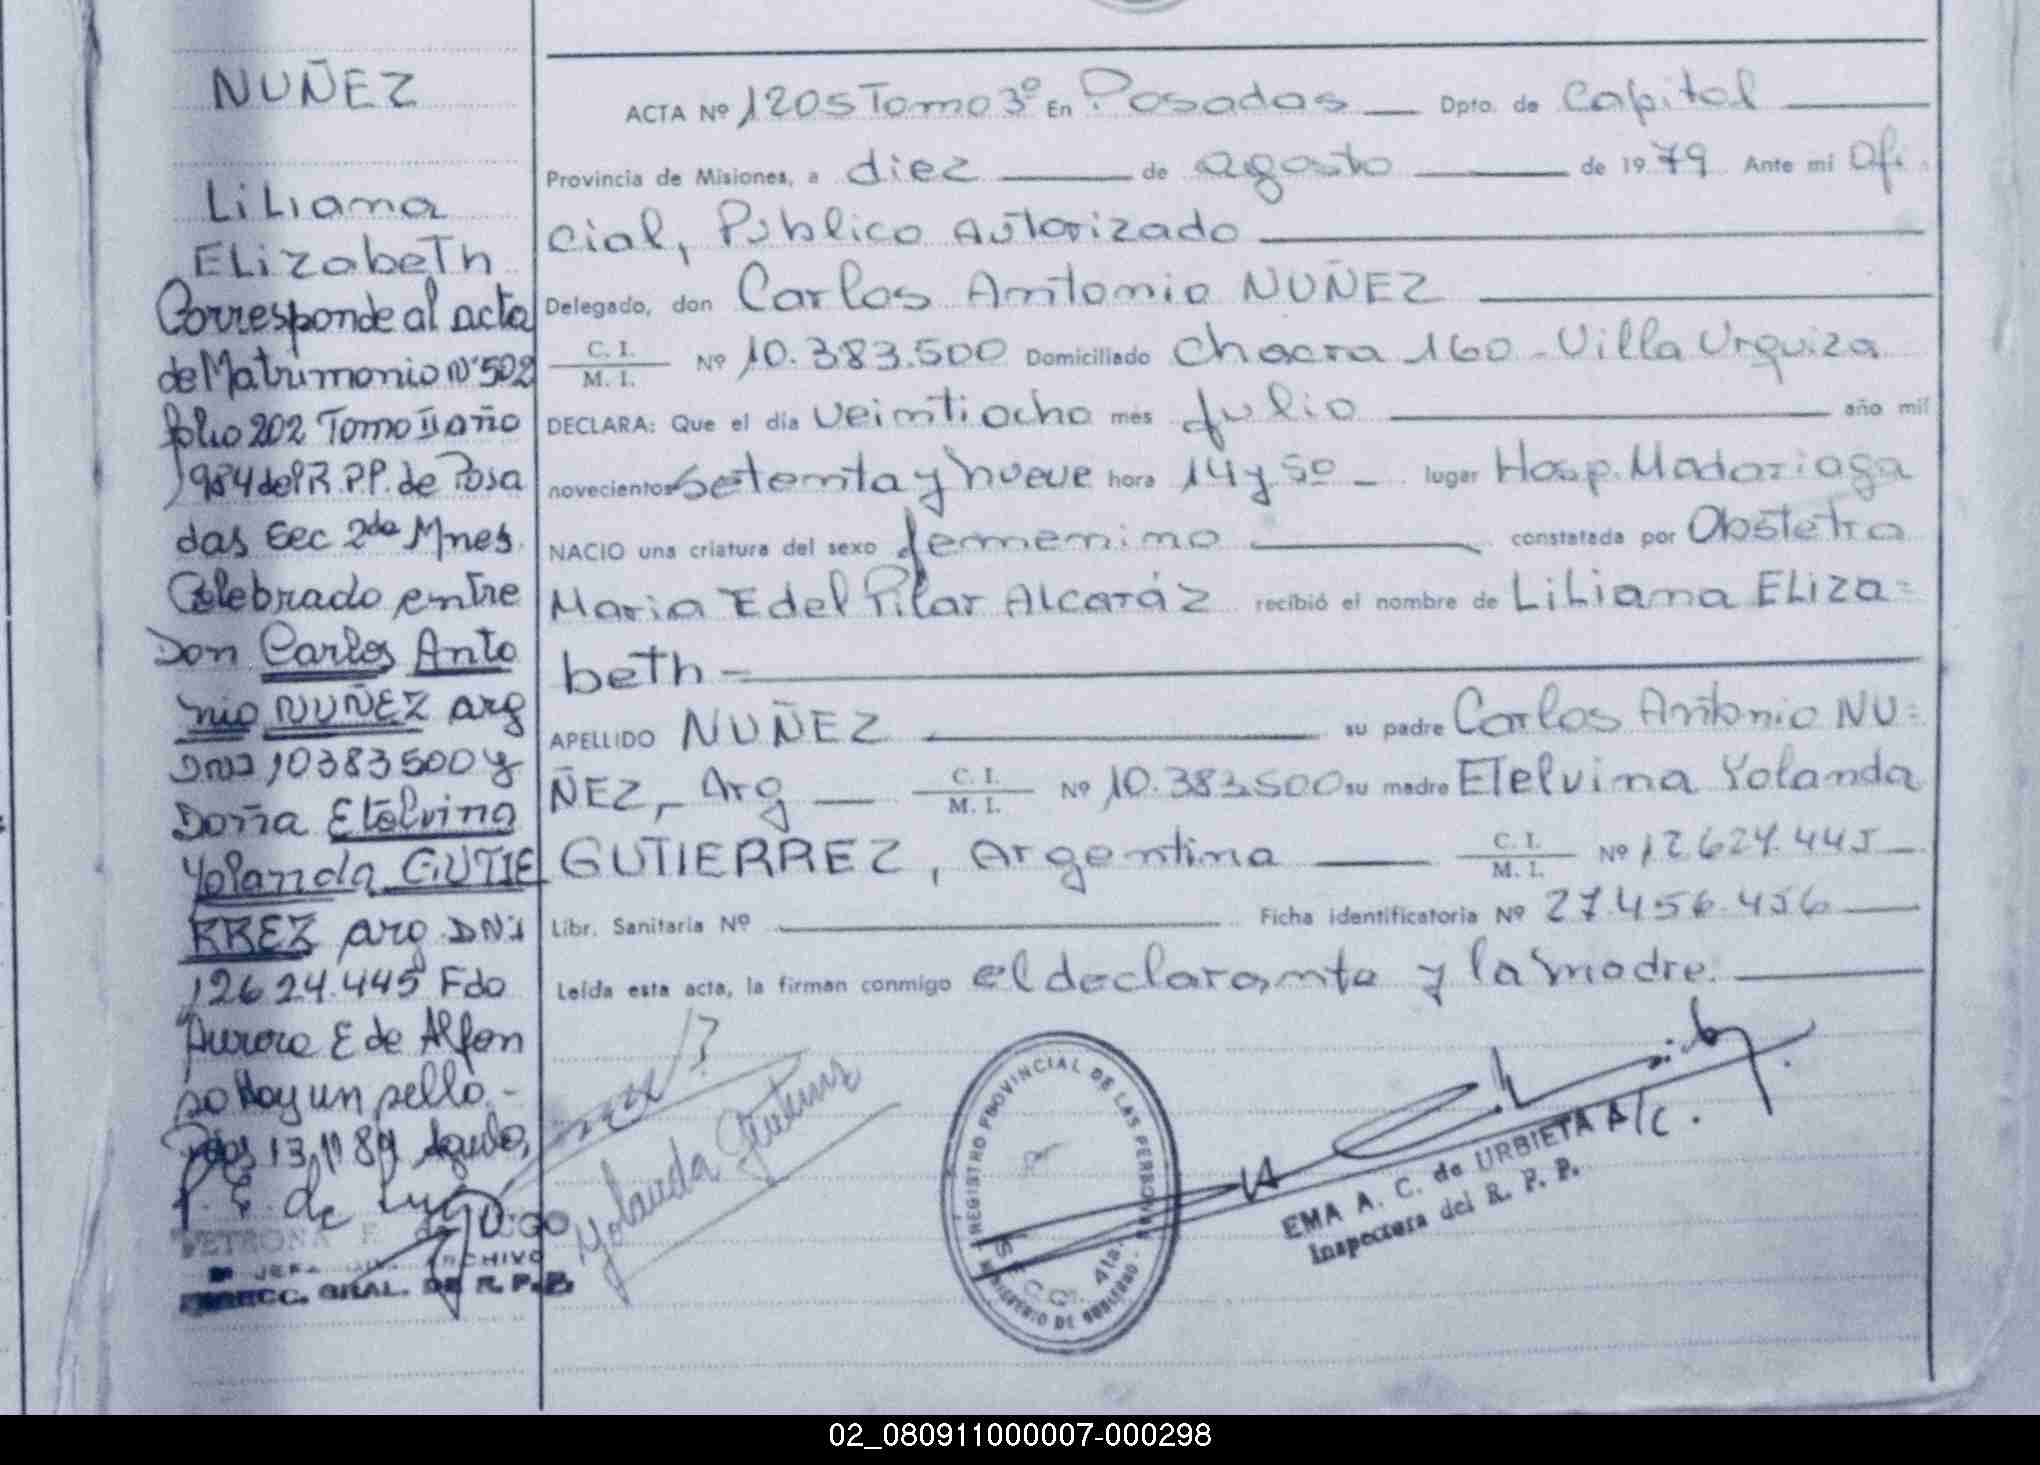 NUÑEZ
Liliana
Elizabeth
Corresponde al acta
de Matrimonio Nº 502
folio 202 Tomo II año
1984 del R.P.P. de Posa
das Sec 2da Mnes.
Celebrado entre
Don Carlos Anto
nio NUÑEZ arg
DNI 10383500 y
Doña Etelvina
Yolanda GUTIE
RREZ arg. DNI
12624.445 Fdo
Aurora E de Alfon
so Hay un sello.-
JEFA ARCHIVO
GRAL. DE R.P.P.
ACTA Nº 1205 Tomo 3º En Posadas Dpto. de Capital
Provincia de Misiones, a diez de agosto de 1979 Ante mi Ofi
cial, Público Autorizado
Delegado, don Carlos Antonio NUÑEZ
C. I. / M. I. Nº 10.383.500 Domiciliado Chacra 160 - Villa Urquiza
DECLARA: Que el día veintiocho mes julio año mil
novecientos setenta y nueve hora 14 y 50 lugar Hosp. Madariaga
NACIO una criatura del sexo femenino constatada por Obstetra
Maria E del Pilar Alcaráz recibió el nombre de Liliana Eliza=
beth -
APELLIDO NUÑEZ su padre Carlos Antonio NU=
ÑEZ, Arg C. I. / M. I. Nº 10.383.500 su madre Etelvina Yolanda
GUTIERREZ, Argentina C. I. / M. I. Nº 12.624.445
Libr. Sanitaria Nº Ficha identificatoria Nº 27.456.456
Leída esta acta, la firman conmigo el declarante y la madre.
Yolanda Gutierrez
REGISTRO PROVINCIAL DE LAS PERSONAS
MINISTERIO DE GOBIERNO
4ta.
A/C.
EMA A. C. de URBIETA
Inspectora del R. P. P.
02_080911000007-000298